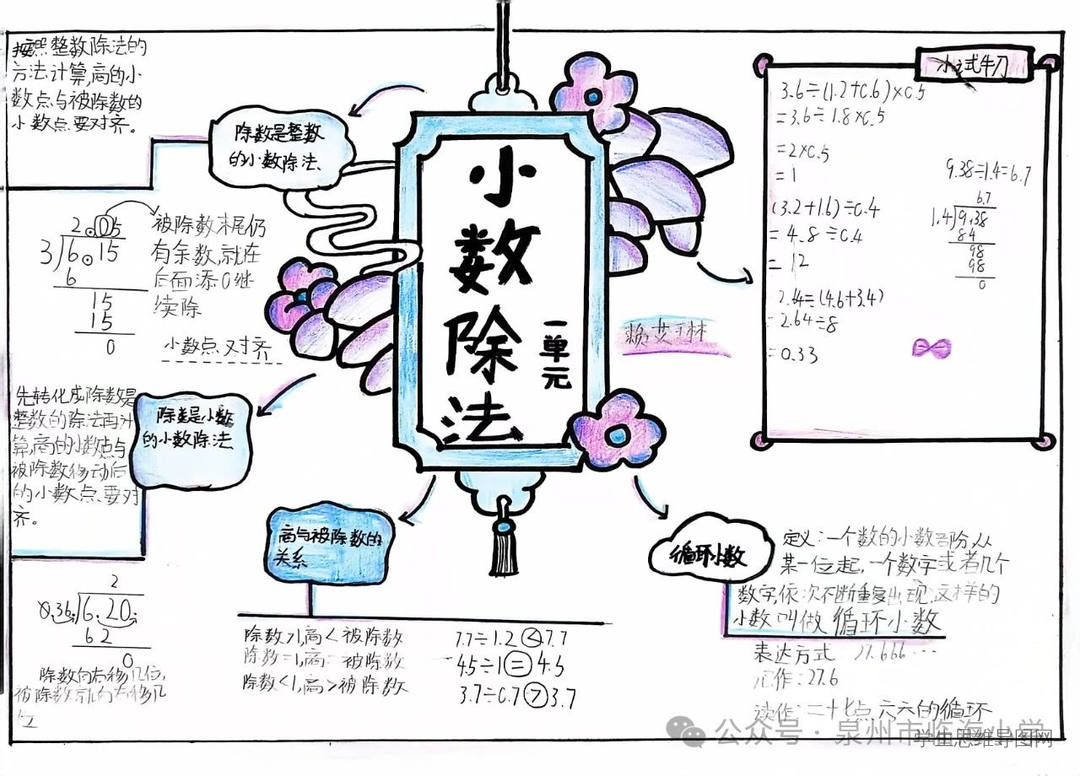 小数除法
一单元
除数是整数
的小数除法
按照整数除法的
方法计算,商的小
数点与被除数的
小数点要对齐。
2.05
3 6.15
6
15
15
0
被除数末尾仍
有余数,就在
后面添0继
续除
小数点对齐
除数是小数
的小数除法
先转化成除数是
整数的除法再计
算,商的小数点与
被除数移动后
的小数点要对
齐。
2
6.20
62
0
除数向右移几位,
被除数就向右移几
位
商与被除数的
关系
除数>1,商<被除数
除数=1,商=被除数
除数<1,商>被除数
7.7÷1.2<7.7
4.5÷1=4.5
3.7÷0.7>3.7
循环小数
定义:一个数的小数部分,从
某一位起,一个数字或者几个
数字,依次不断重复出现,这样的
小数叫做循环小数
表达方式 27.666…
记作:27.6
读作:二十七点六六的循环
小试牛刀
3.6÷(1.2+0.6)×0.5
=3.6÷1.8×0.5
=2×0.5
=1
(3.2+1.6)÷0.4
=4.8÷0.4
=12
(4.6+3.4)
2.64÷8
=0.33
9.38÷1.4=6.7
6.7
1.4 9.38
84
98
98
0
公众号·泉州市临海小学
学生思维导图网